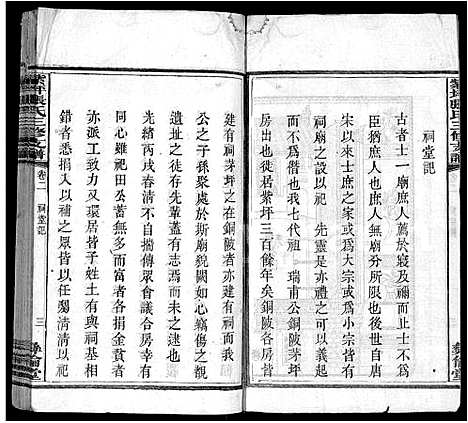 祠堂記
古者士一廟庶人薦於寢及禰而止士不為
臣猶庶人也庶人無廟分所限也
宋以來士庶之家或為大宗或為小宗
祠廟之設以祀 先靈是亦禮之可以義起
也我 七代祖 瑞甫公銅陂茅坪之
房從此徙居紫坪三百餘年矣銅陂各房皆
建有祠茅坪之在銅陂者亦建有祠而我
公之子孫聚處於斯廟貌闕如心竊傷之觀
遺像之述存先輩蓋有志而未逮也
光緒丙戌春清不自揣傳眾會議合房幸有
同心雖祀田公蓄無多而富者各捐金貧者
亦派工效力又環居皆子姓土有與祠基相
錯者悉捐入以補之眾皆以任勷清清以祀
紫坪張氏三修支譜
卷二 祠堂記
三